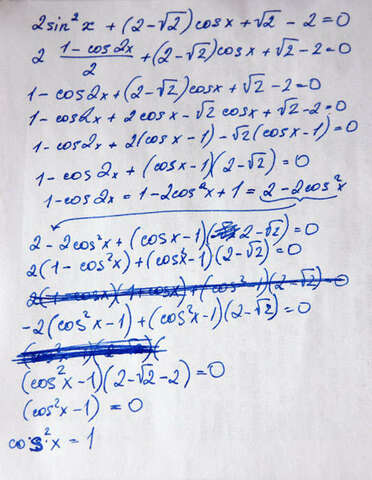 2sin²x + (2-√2)cosx + √2 - 2 = 0
2 (1-cos2x)/2 + (2-√2)cosx + √2 - 2 = 0
1 - cos2x + (2-√2)cosx + √2 - 2 = 0
1 - cos2x + 2cosx - √2 cosx + √2 - 2 = 0
1 - cos2x + 2(cosx - 1) - √2(cosx - 1) = 0
1 - cos2x + (cosx - 1)(2-√2) = 0
1 - cos2x = 1 - 2cos²x + 1 = 2 - 2cos²x
2 - 2cos²x + (cosx - 1)(2-√2) = 0
2(1 - cos²x) + (cos²x - 1)(2-√2) = 0
2(1-cosx)(1+cosx) + (cos²x - 1)(2-√2) = 0
-2(cos²x - 1) + (cos²x - 1)(2-√2) = 0
(cos²x - 1)(2-√2-2) = 0
(cos²x - 1) = 0
cos²x = 1